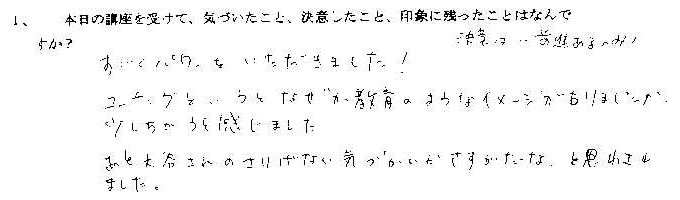 1、 本日の講座を受けて、気づいたこと、決意したこと、印象に残ったことはなんで
すか?
すごくパワーをいただきました!
というとなぜか教育のようなイメージがありましたが、
少しちがうと感じました
あと大谷さんのさりげない気づかいがさすがだな、と思わされ
ました。